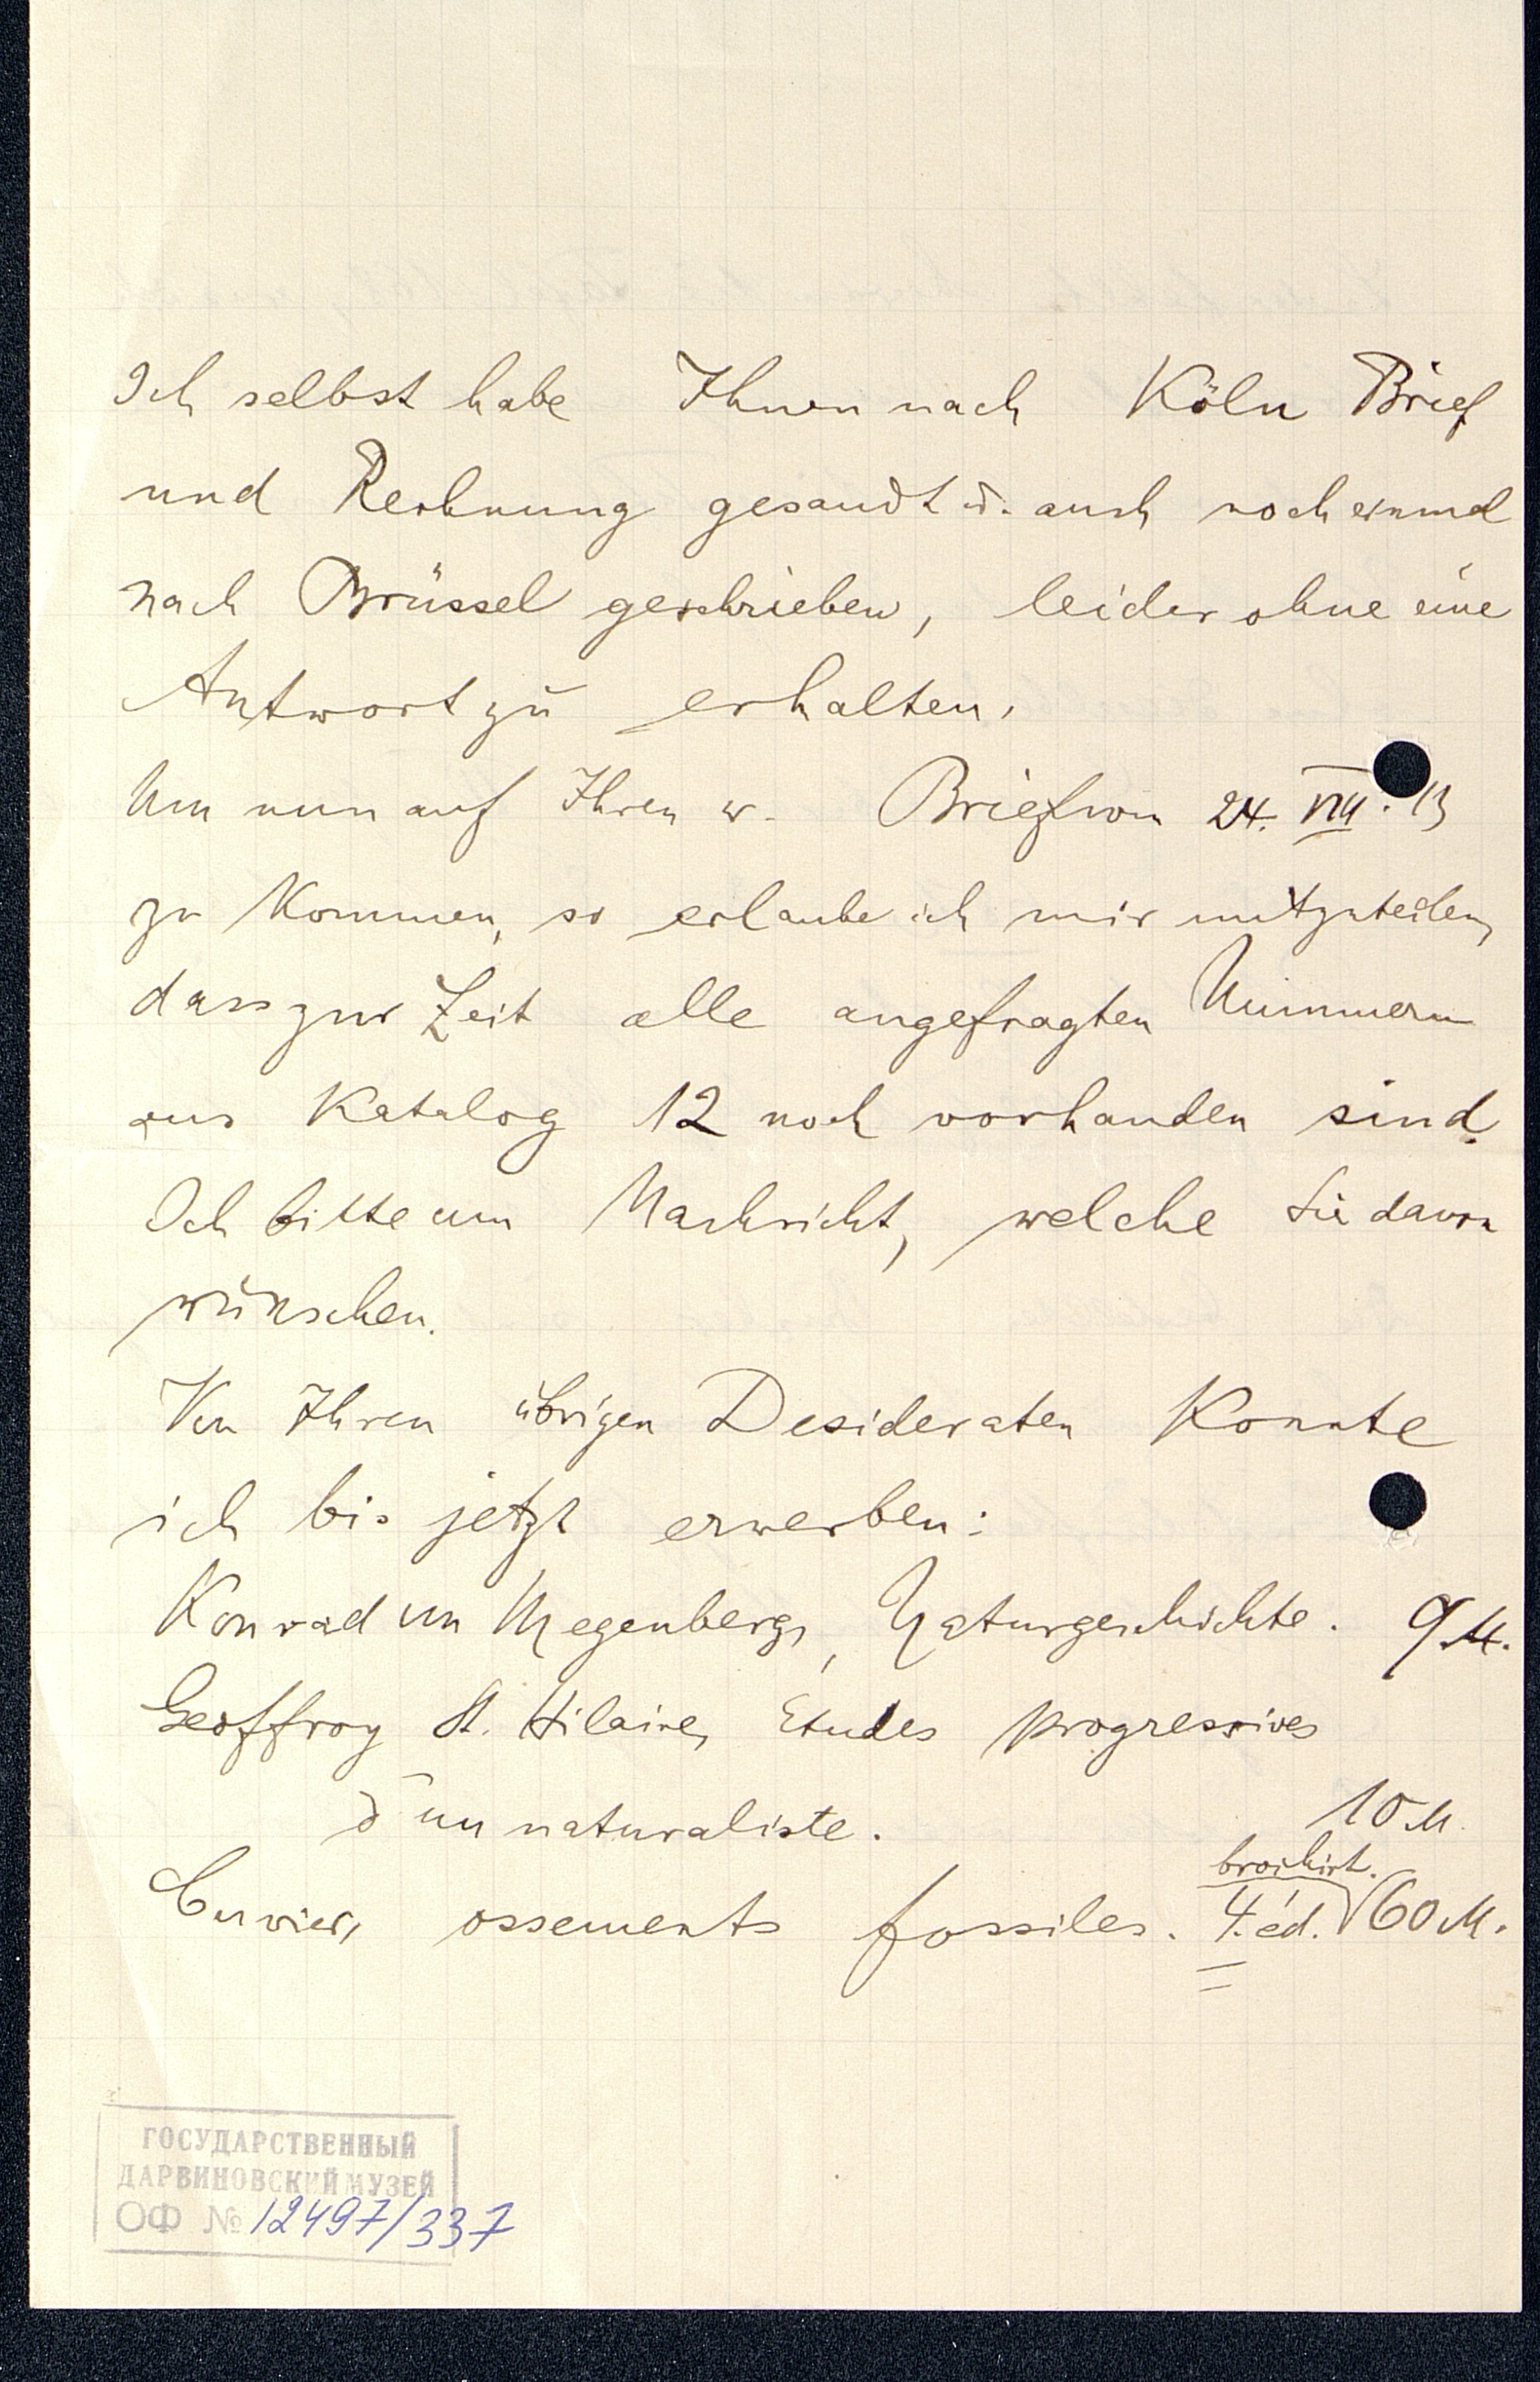 Ich selbst habe Ihnen nach Köln Brief
und Rechnung gesandt u. auch noch einmal
nach Brüssel geschrieben, leider ohne eine
Antwort zu erhalten.
Um nun auf Ihren w. Brief vom 24. VIII. 13
zu kommen, so erlaube ich mir mitzuteilen,
dass zur Zeit alle angefragten Nummern
aus Katalog 12 noch vorhanden sind.
Ich bitte um Nachricht, welche Sie davon
wünschen.
Von Ihren übrigen Desideraten konnte
ich bis jetzt erwerben:
Konrad von Megenberg, Naturgeschichte. 9 M.
Geoffroy St. Hilaire, Etudes progressives
d'un naturaliste. 10 M.
brochirt.
Cuvier, ossements fossiles. 4. éd. 60 M.
ГОСУДАРСТВЕННЫЙ
ДАРВИНОВСКИЙ МУЗЕЙ
ОФ № 12497/337